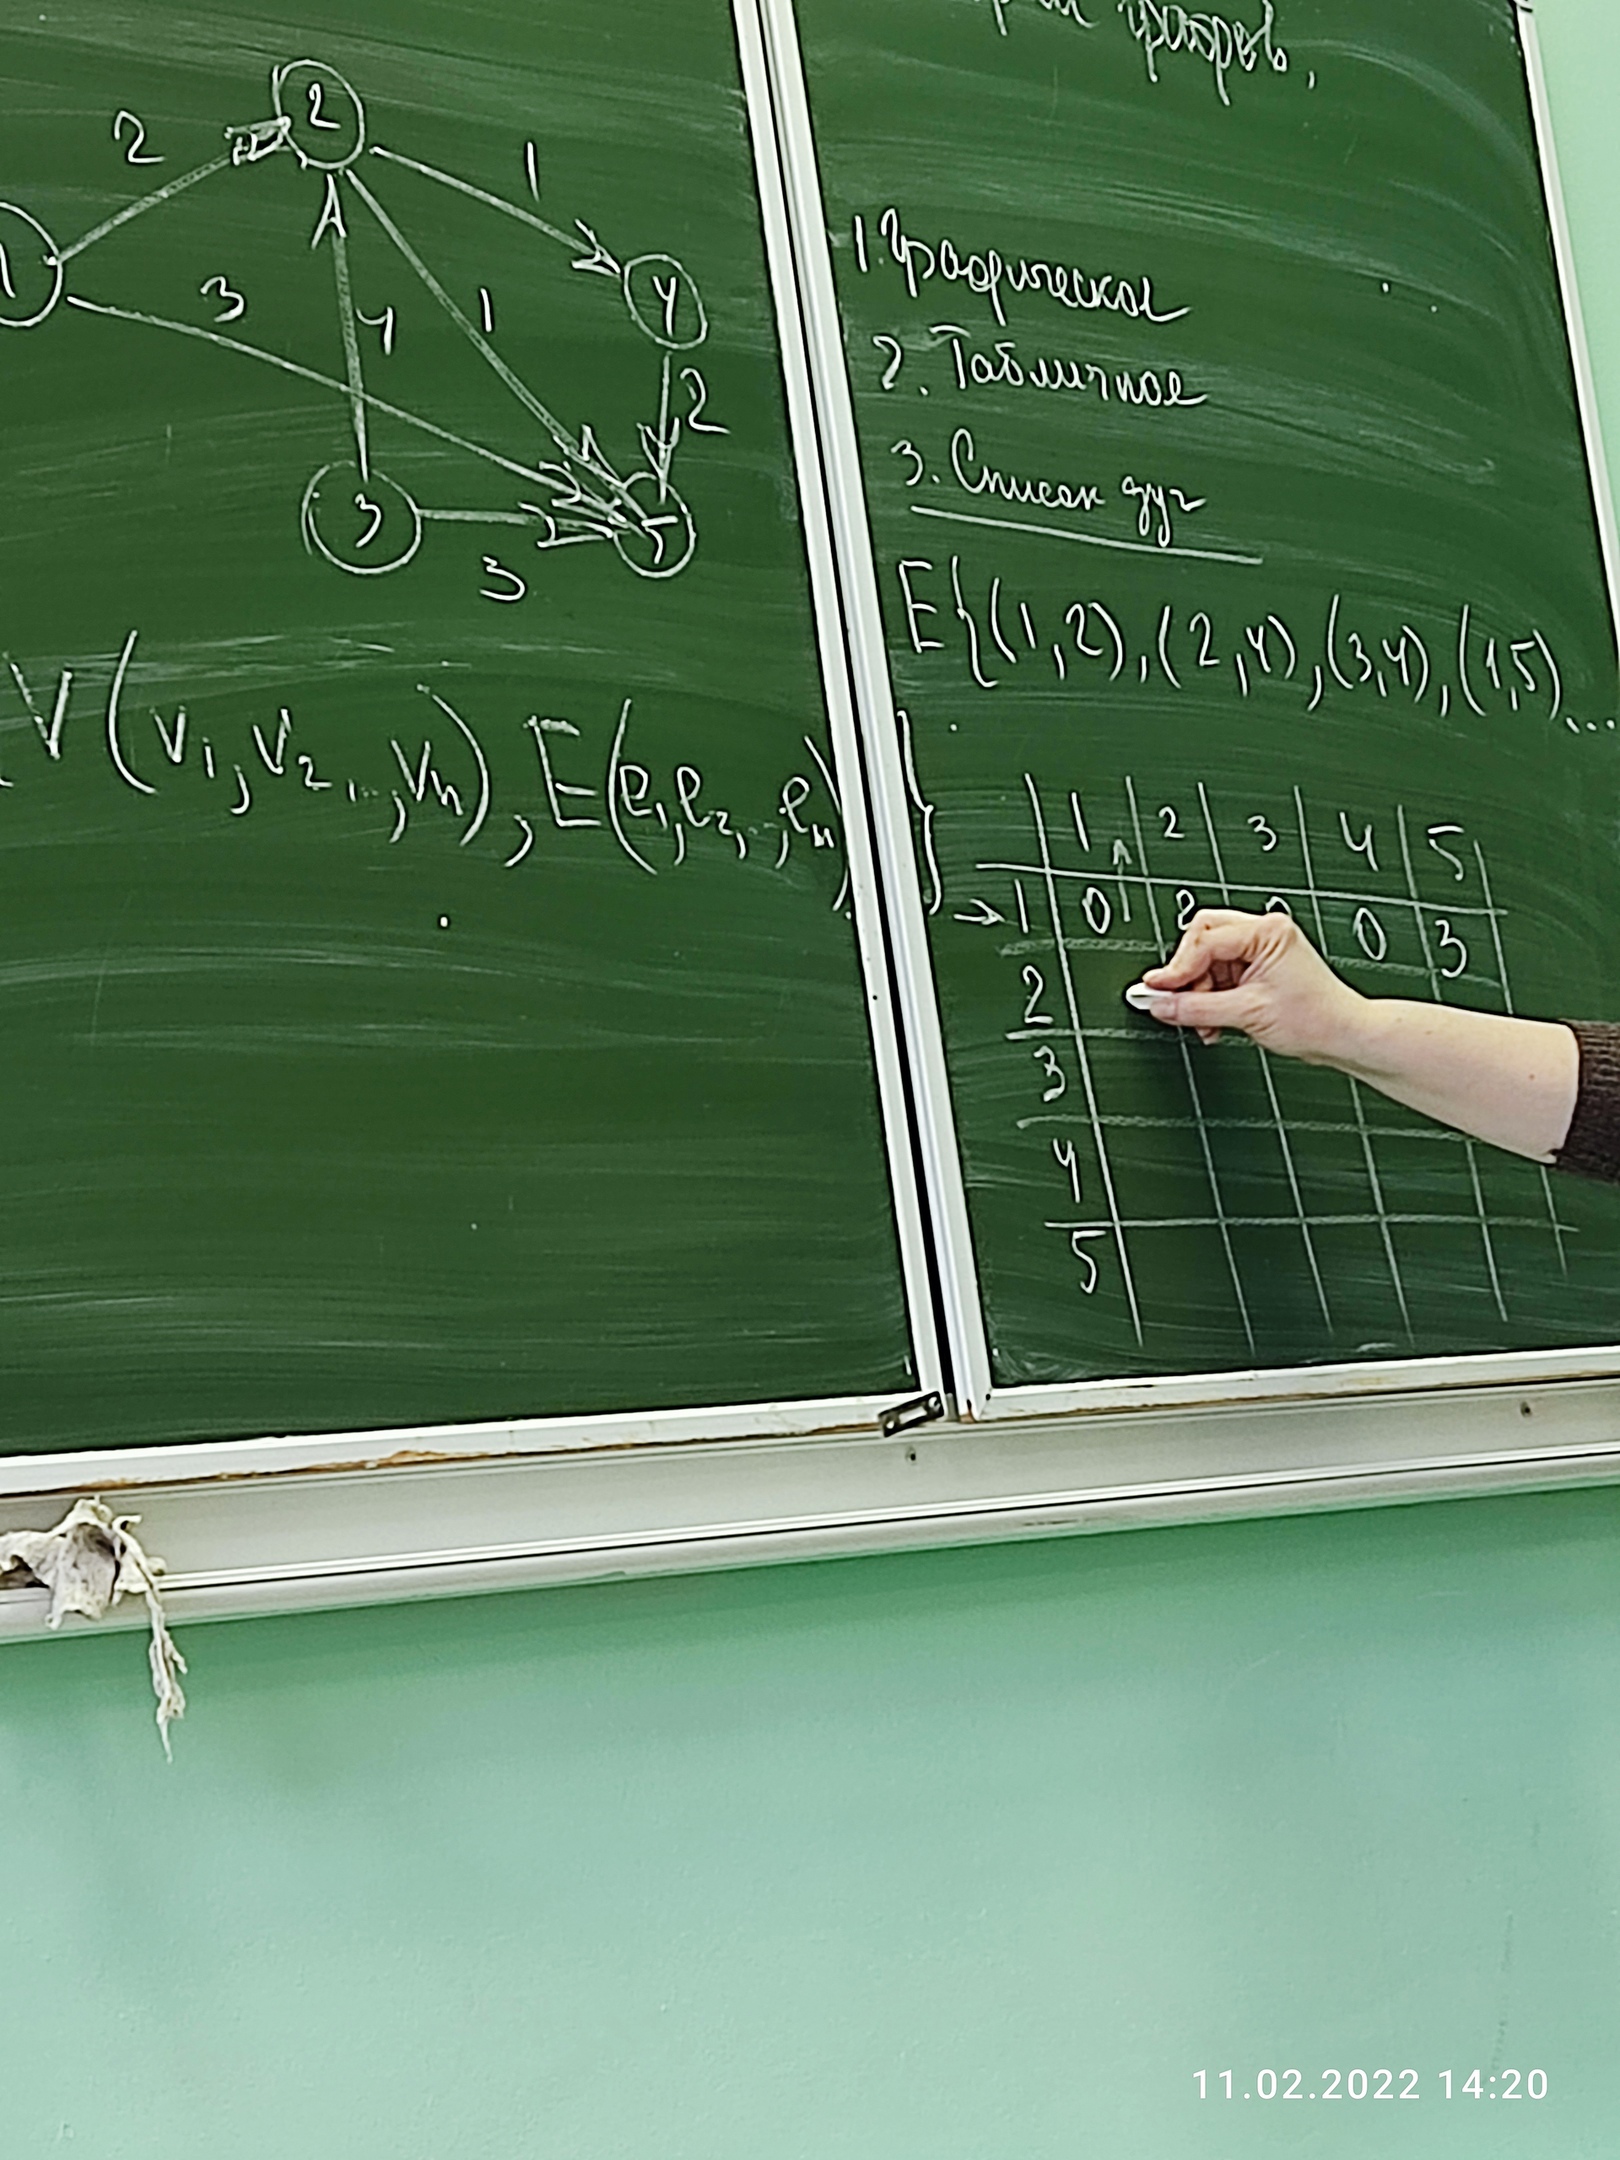 графов,
2
2
1
1
3
4
1
4
2
3
3
5
V(v₁,v₂...,vₙ), E(e₁,e₂,..,eₙ)}
1. Графическое
2. Табличное
3. Список дуг
E{(1,2),(2,4),(3,4),(1,5)...
1 2 3 4 5
→1 0 2 0 0 3
2
3
4
5
11.02.2022 14:20